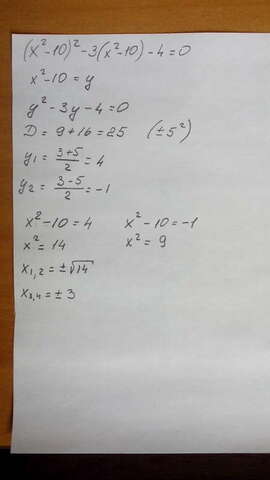 (x²-10)²-3(x²-10)-4=0
x²-10=y
y²-3y-4=0
D=9+16=25 (±5²)
y₁=\frac{3+5}{2}=4
y₂=\frac{3-5}{2}=-1
x²-10=4 x²-10=-1
x²=14 x²=9
x₁,₂=±√14
x₃,₄=±3